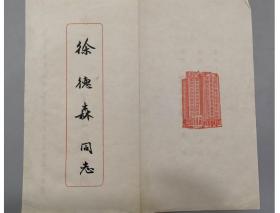 徐德森同志